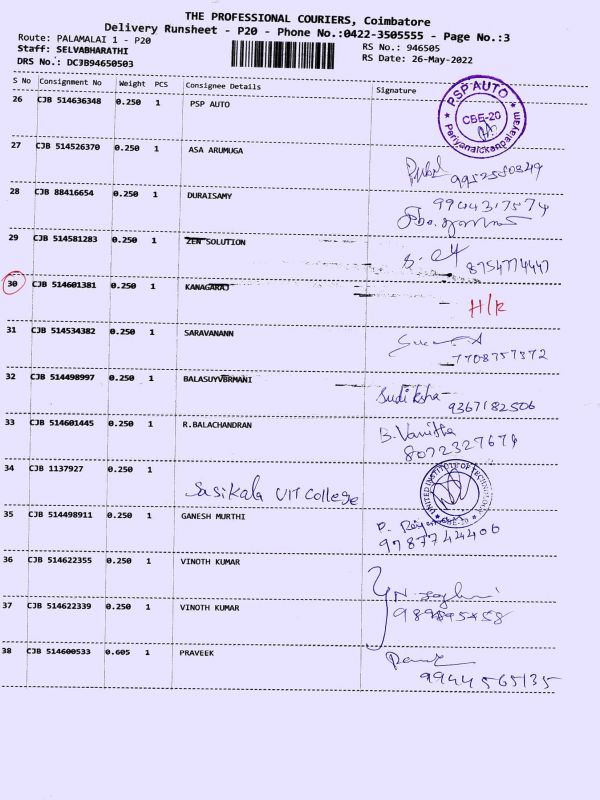 THE PROFESSIONAL COURIERS, Coimbatore
Delivery Runsheet - P20 - Phone No.:0422-3505555 - Page No.:3
Route: PALAMALAI 1 - P20
Staff: SELVABHARATHI
DRS No.: DCJB94650503
RS No.: 946505
RS Date: 26-May-2022
S No Consignment No Weight PCS Consignee Details Signature
26 CJB 514636348 0.250 1 PSP AUTO
PSP AUTO CBE-20 Periyanaickenpalayam
27 CJB 514526370 0.250 1 ASA ARUMUGA
9952580349
28 CJB 88416654 0.250 1 DURAISAMY
9944317574
29 CJB 514581283 0.250 1 ZEN SOLUTION
8754774447
30 CJB 514601381 0.250 1 KANAGARAJ
H/R
31 CJB 514534382 0.250 1 SARAVANANN
7708757372
32 CJB 514498997 0.250 1 BALASUYVBRMANI
Sudiksha
9367182506
33 CJB 514601445 0.250 1 R.BALACHANDRAN
B. Vanitha
8072327674
34 CJB 1137927 0.250 1
Sasikala UIT College
UNITED INSTITUTE OF TECHNOLOGY CBE-20
35 CJB 514498911 0.250 1 GANESH MURTHI
9787744406
36 CJB 514622355 0.250 1 VINOTH KUMAR
37 CJB 514622339 0.250 1 VINOTH KUMAR
38 CJB 514600533 0.605 1 PRAVEEK
9944565135